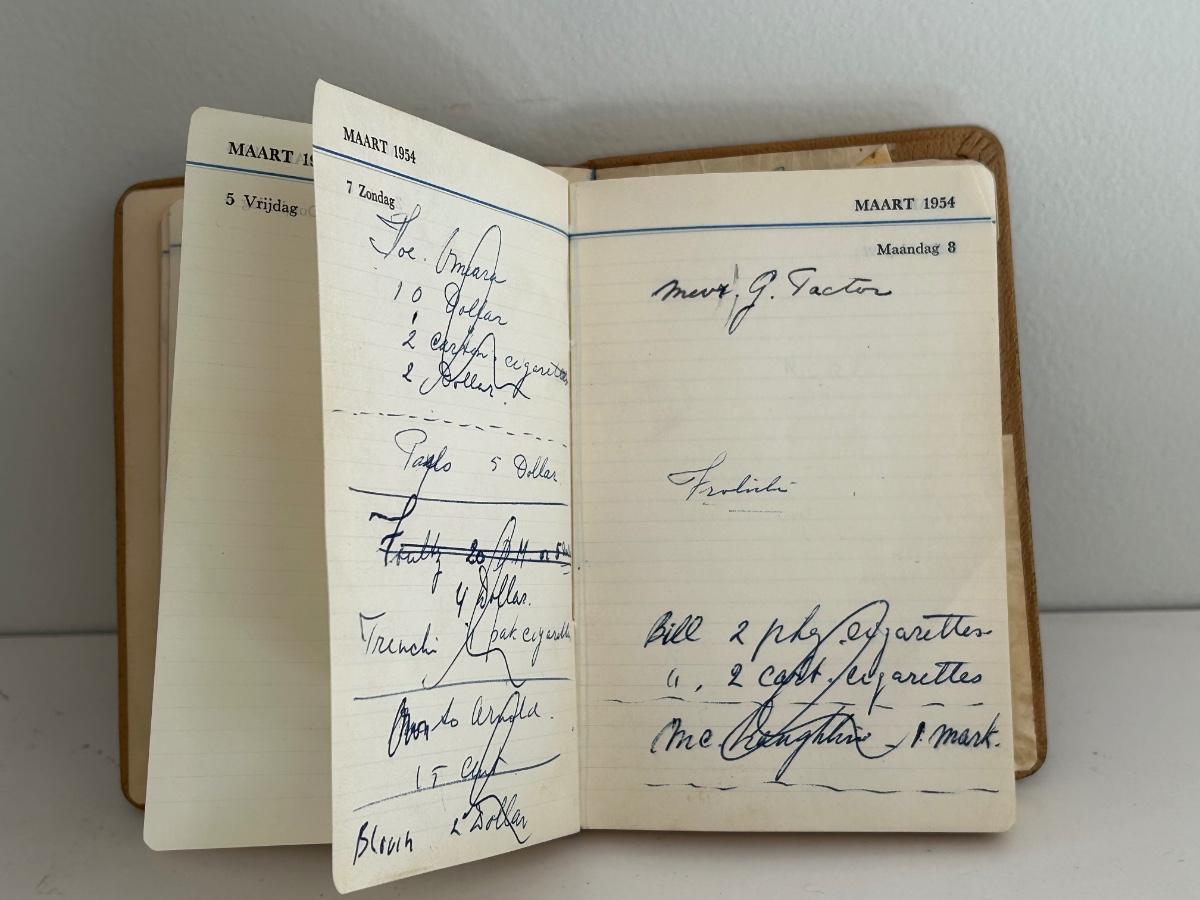 MAART 19
5 Vrijdag
MAART 1954
7 Zondag
Joe. Omeara
10 Dollar
2 carton. cigarettes
2 Dollar.
5 Dollar
20 D.M. or 5
4 Dollar.
Trenchi 1 pak cigarette
to Arnold.
15 Cent
2 Dollar
MAART 1954
Maandag 8
Mevr. G. Tactor
Bill 2 pkg. cigarettes
" . 2 cart. cigarettes
Mc. Loughlin 1. mark.